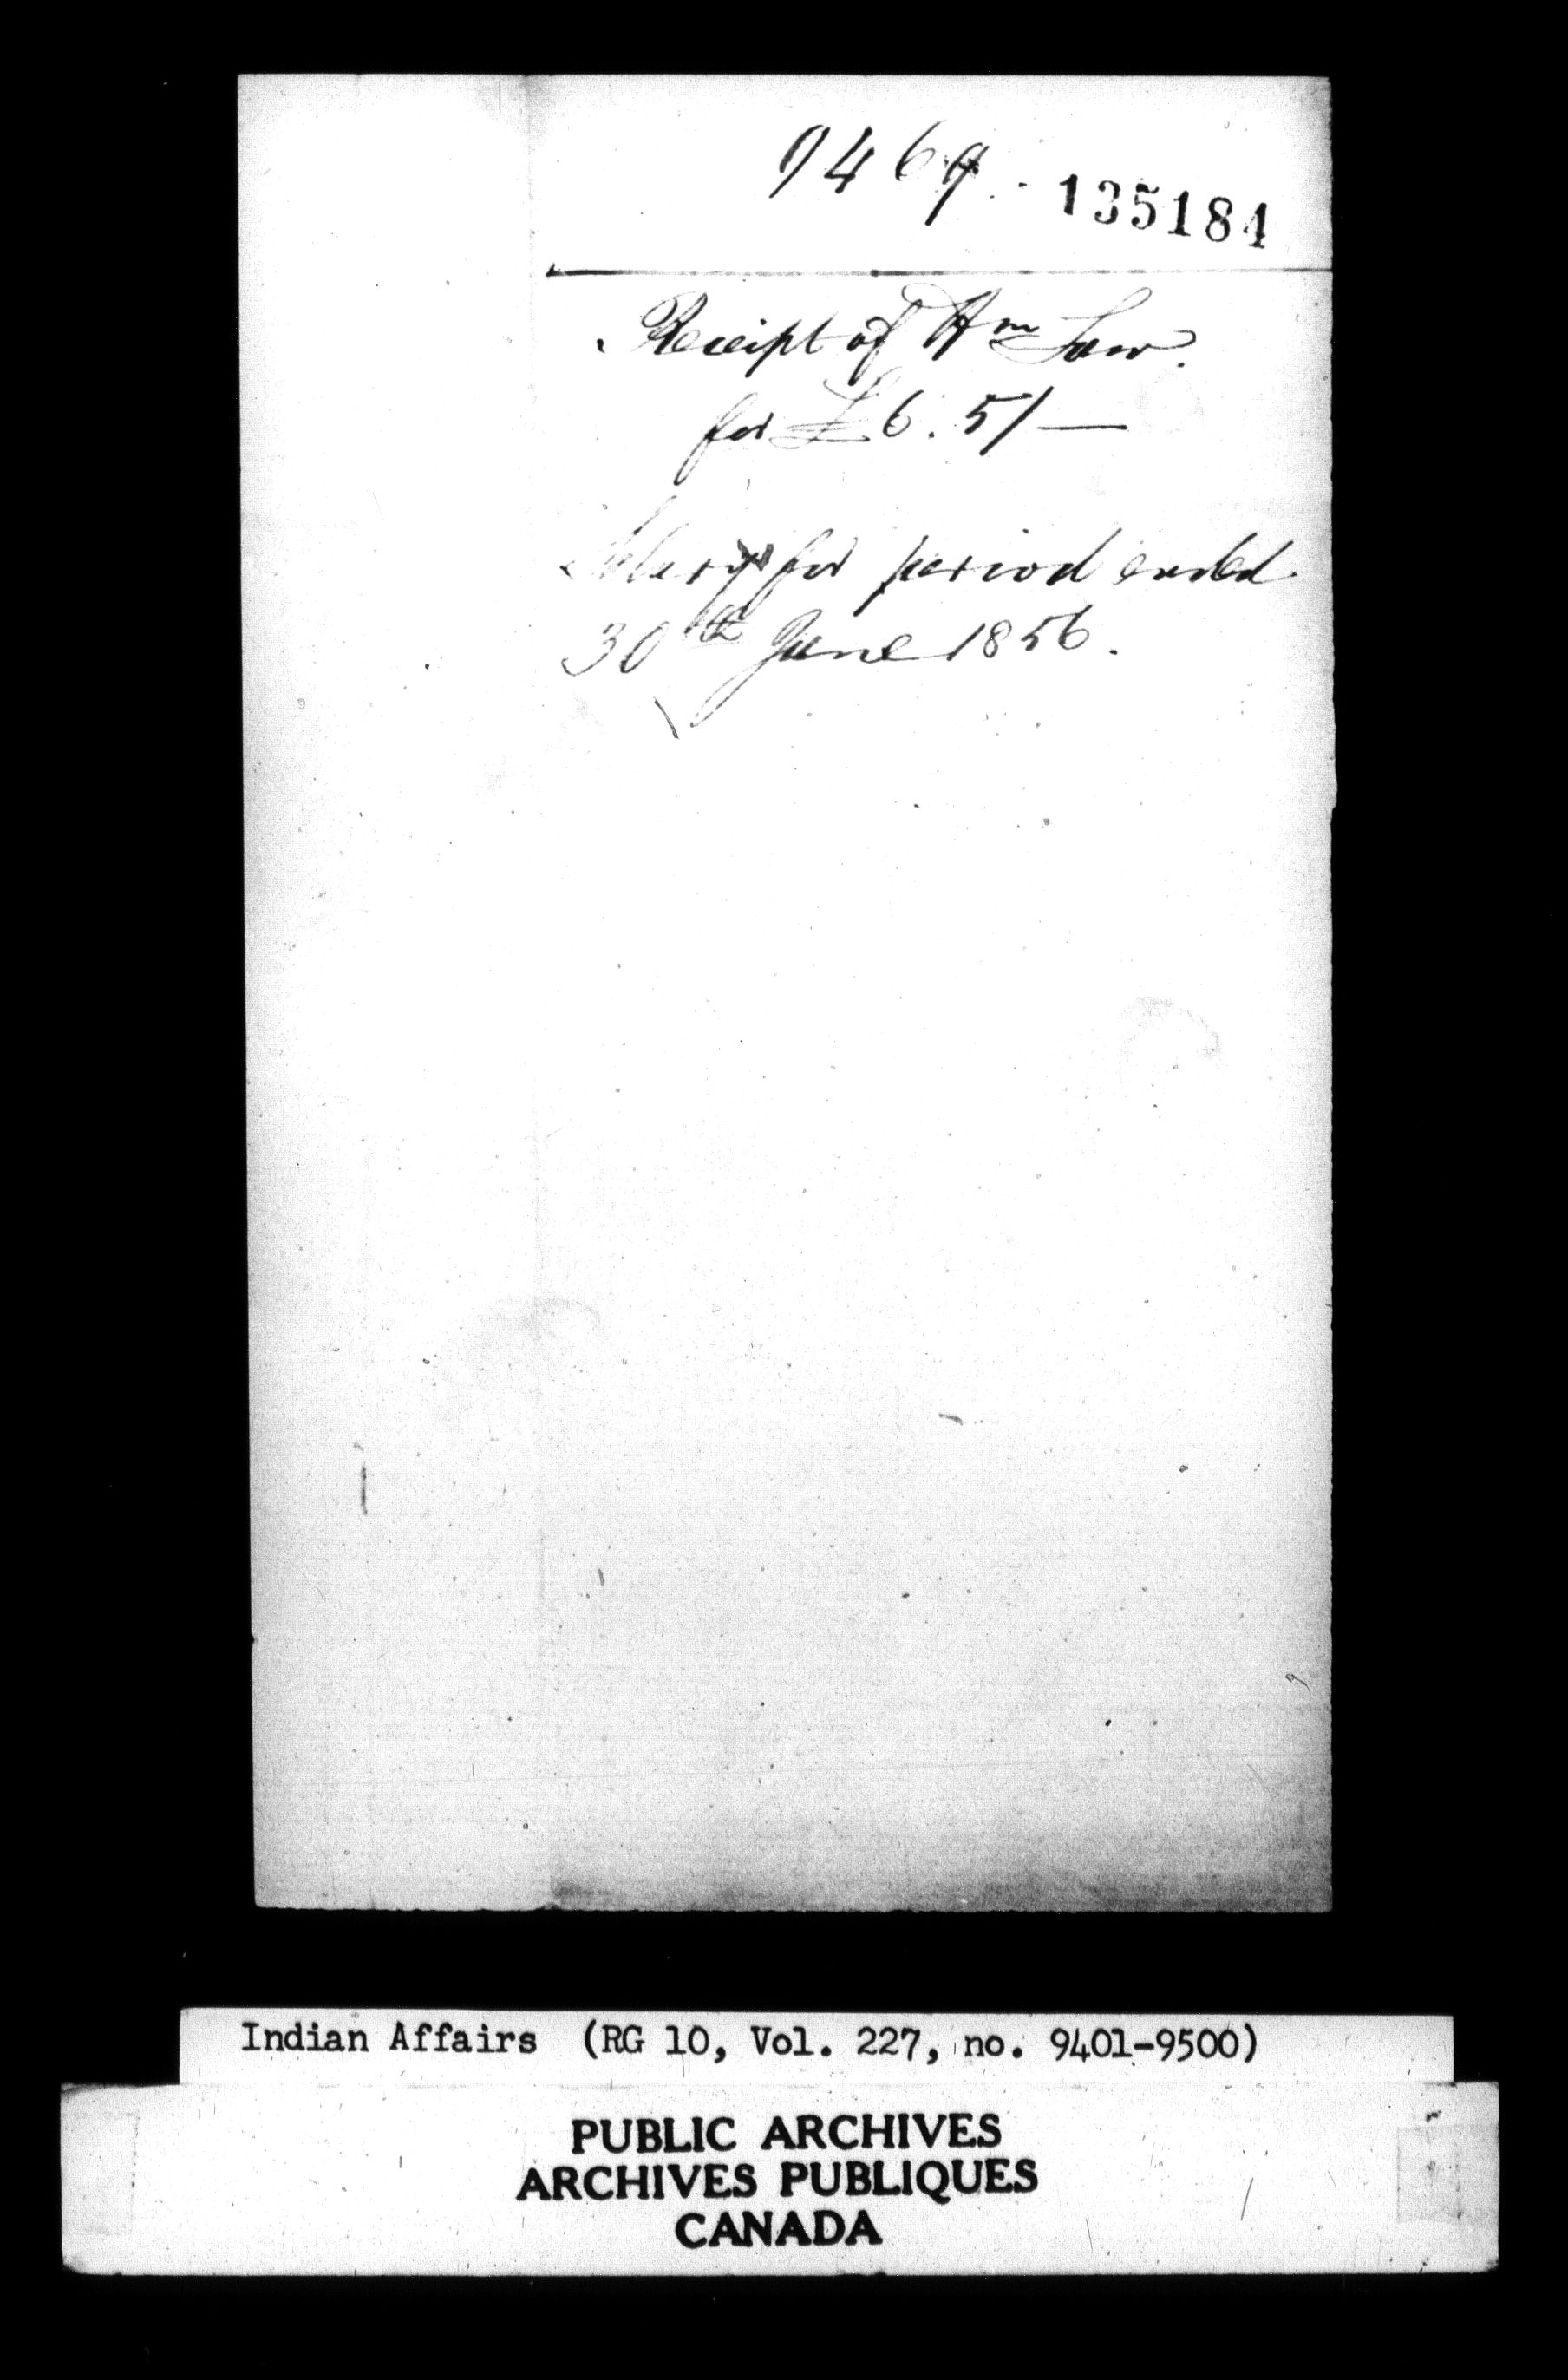 9469. 135184
Receipt of Wm Law.
for £6.5/—
Salary for period ended
30th June 1856.
Indian Affairs (RG 10, Vol. 227, no. 9401-9500)
PUBLIC ARCHIVES
ARCHIVES PUBLIQUES
CANADA